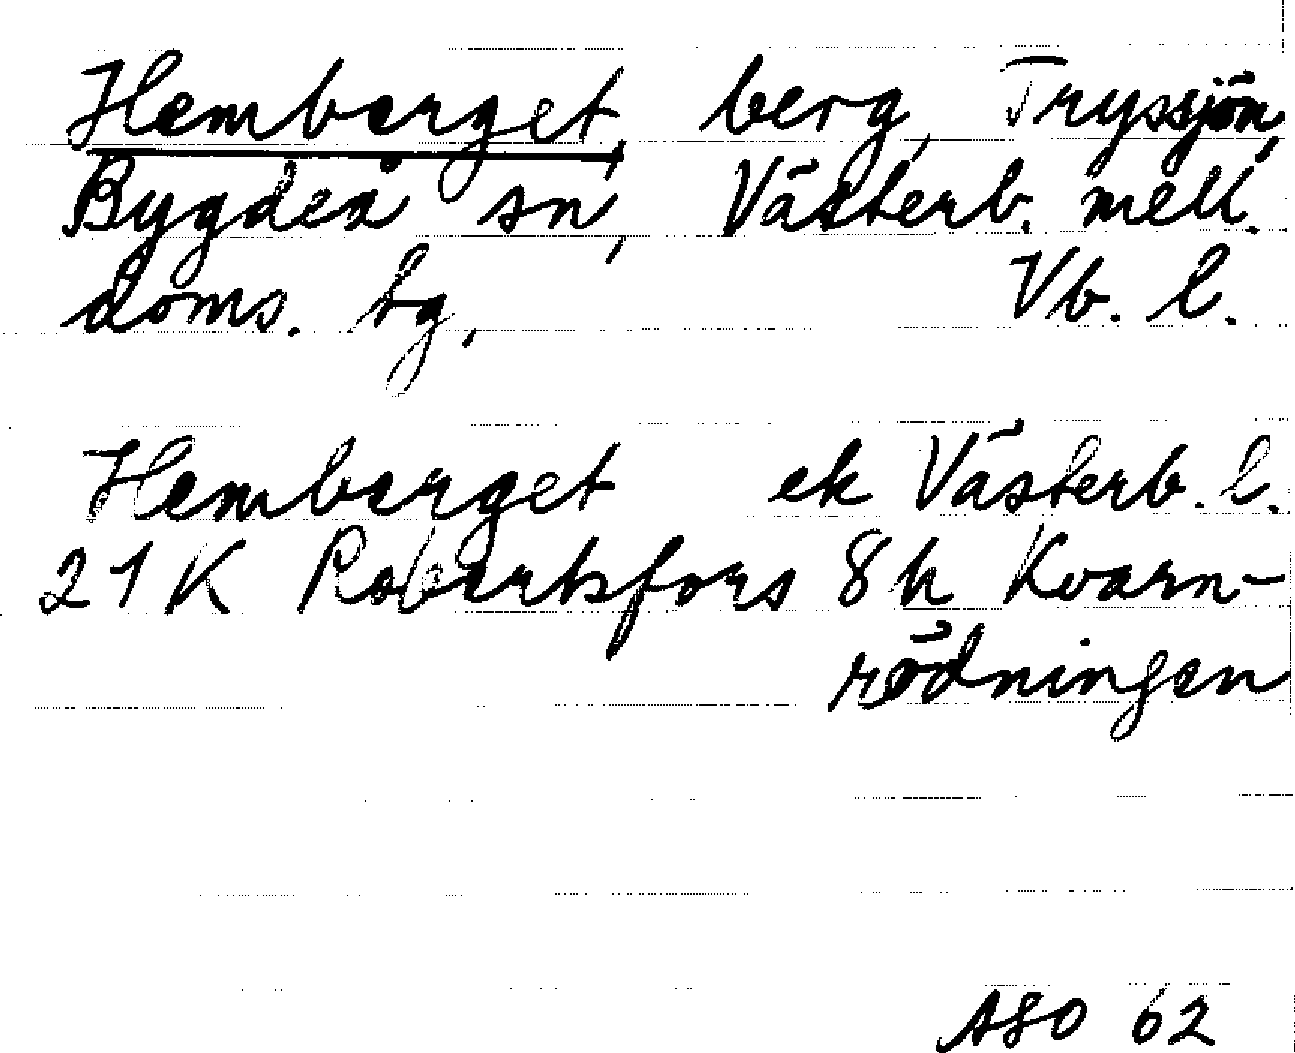 Hemberget, berg, Tryssjön,
Bygdeå sn, Västerb. mell.
doms. tg, Vb. l.
Hemberget ek Västerb. l.
21K Robertsfors 8h Kvarn-
rödningen
ASO 62